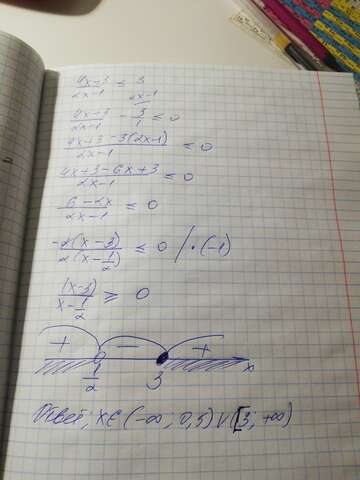 4x+3/2x-1 ≤ 3
4x+3/2x-1 - 3/1 ≤ 0
4x+3-3(2x-1)/2x-1 ≤ 0
4x+3-6x+3/2x-1 ≤ 0
6-2x/2x-1 ≤ 0
-2(x-3)/2(x-1/2) ≤ 0 /·(-1)
(x-3)/x-1/2 ≥ 0
+ - +
1/2 3 x
Ответ: x∈(-∞; 0,5)∪[3; +∞)